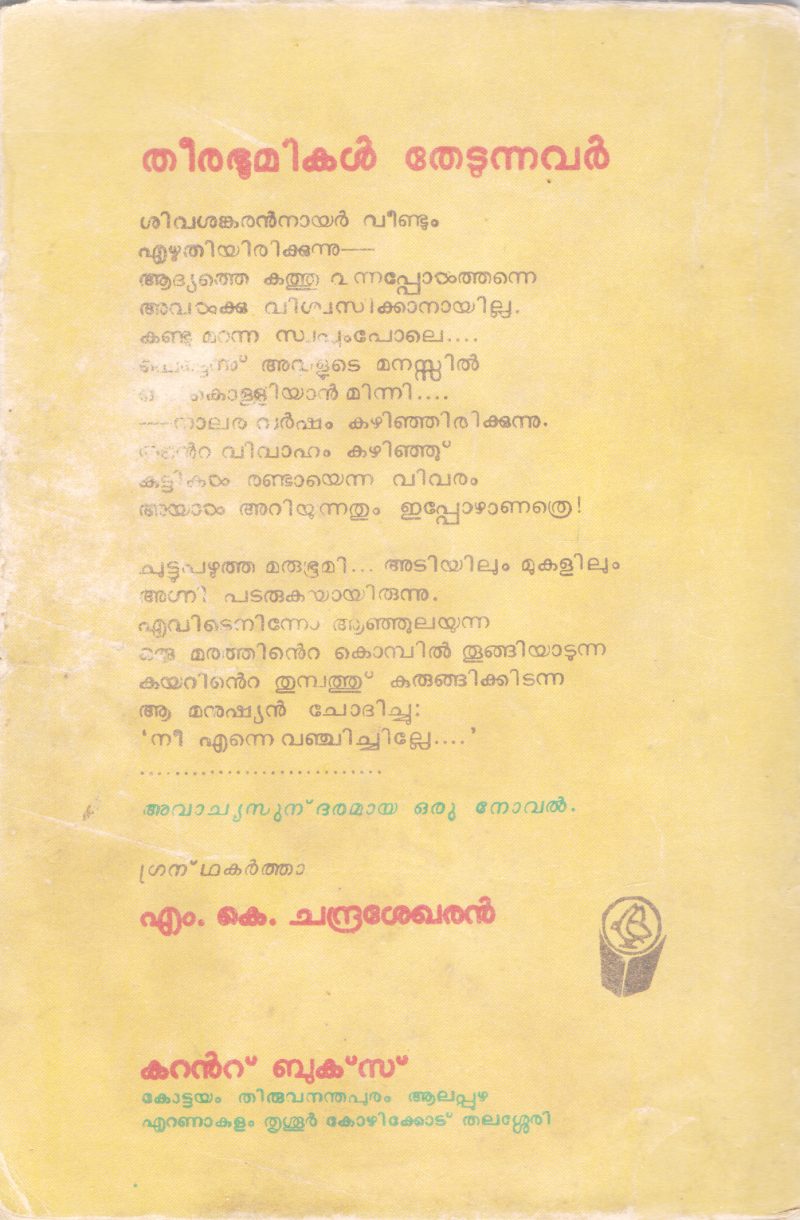 തീരഭൂമികൾ തേടുന്നവർ
ശിവശങ്കരൻനായർ വീണ്ടും
എഴുതിയിരിക്കുന്നു—
ആദ്യത്തെ കത്തു വന്നപ്പോൾത്തന്നെ
അവൾക്കു വിശ്വസിക്കാനായില്ല.
കണ്ടു മറന്ന സ്വപ്നംപോലെ....
പെട്ടെന്ന് അവളുടെ മനസ്സിൽ
കൊള്ളിയാൻ മിന്നി....
—നാലര വർഷം കഴിഞ്ഞിരിക്കുന്നു.
വിവാഹം കഴിഞ്ഞു്
കുട്ടികൾ രണ്ടായെന്ന വിവരം
അയാൾ അറിയുന്നതും ഇപ്പോഴാണത്രെ!
ചുട്ടുപഴുത്ത മരുഭൂമി... അടിയിലും മുകളിലും
അഗ്നി പടരുകയായിരുന്നു.
എവിടെനിന്നോ ആഞ്ഞുലയുന്ന
ഒരു മരത്തിൻെറ കൊമ്പിൽ തൂങ്ങിയാടുന്ന
കയറിൻെറ തുമ്പത്തു് കുരുങ്ങിക്കിടന്ന
ആ മനുഷ്യൻ ചോദിച്ചു:
‘നീ എന്നെ വഞ്ചിച്ചില്ലേ....’
............................
അവാച്യസുന്ദരമായ ഒരു നോവൽ.
ഗ്രന്ഥകർത്താ
എം. കെ. ചന്ദ്രശേഖരൻ
കറൻറ് ബുക്സ്
കോട്ടയം തിരുവനന്തപുരം ആലപ്പുഴ
എറണാകുളം തൃശൂർ കോഴിക്കോട് തലശ്ശേരി